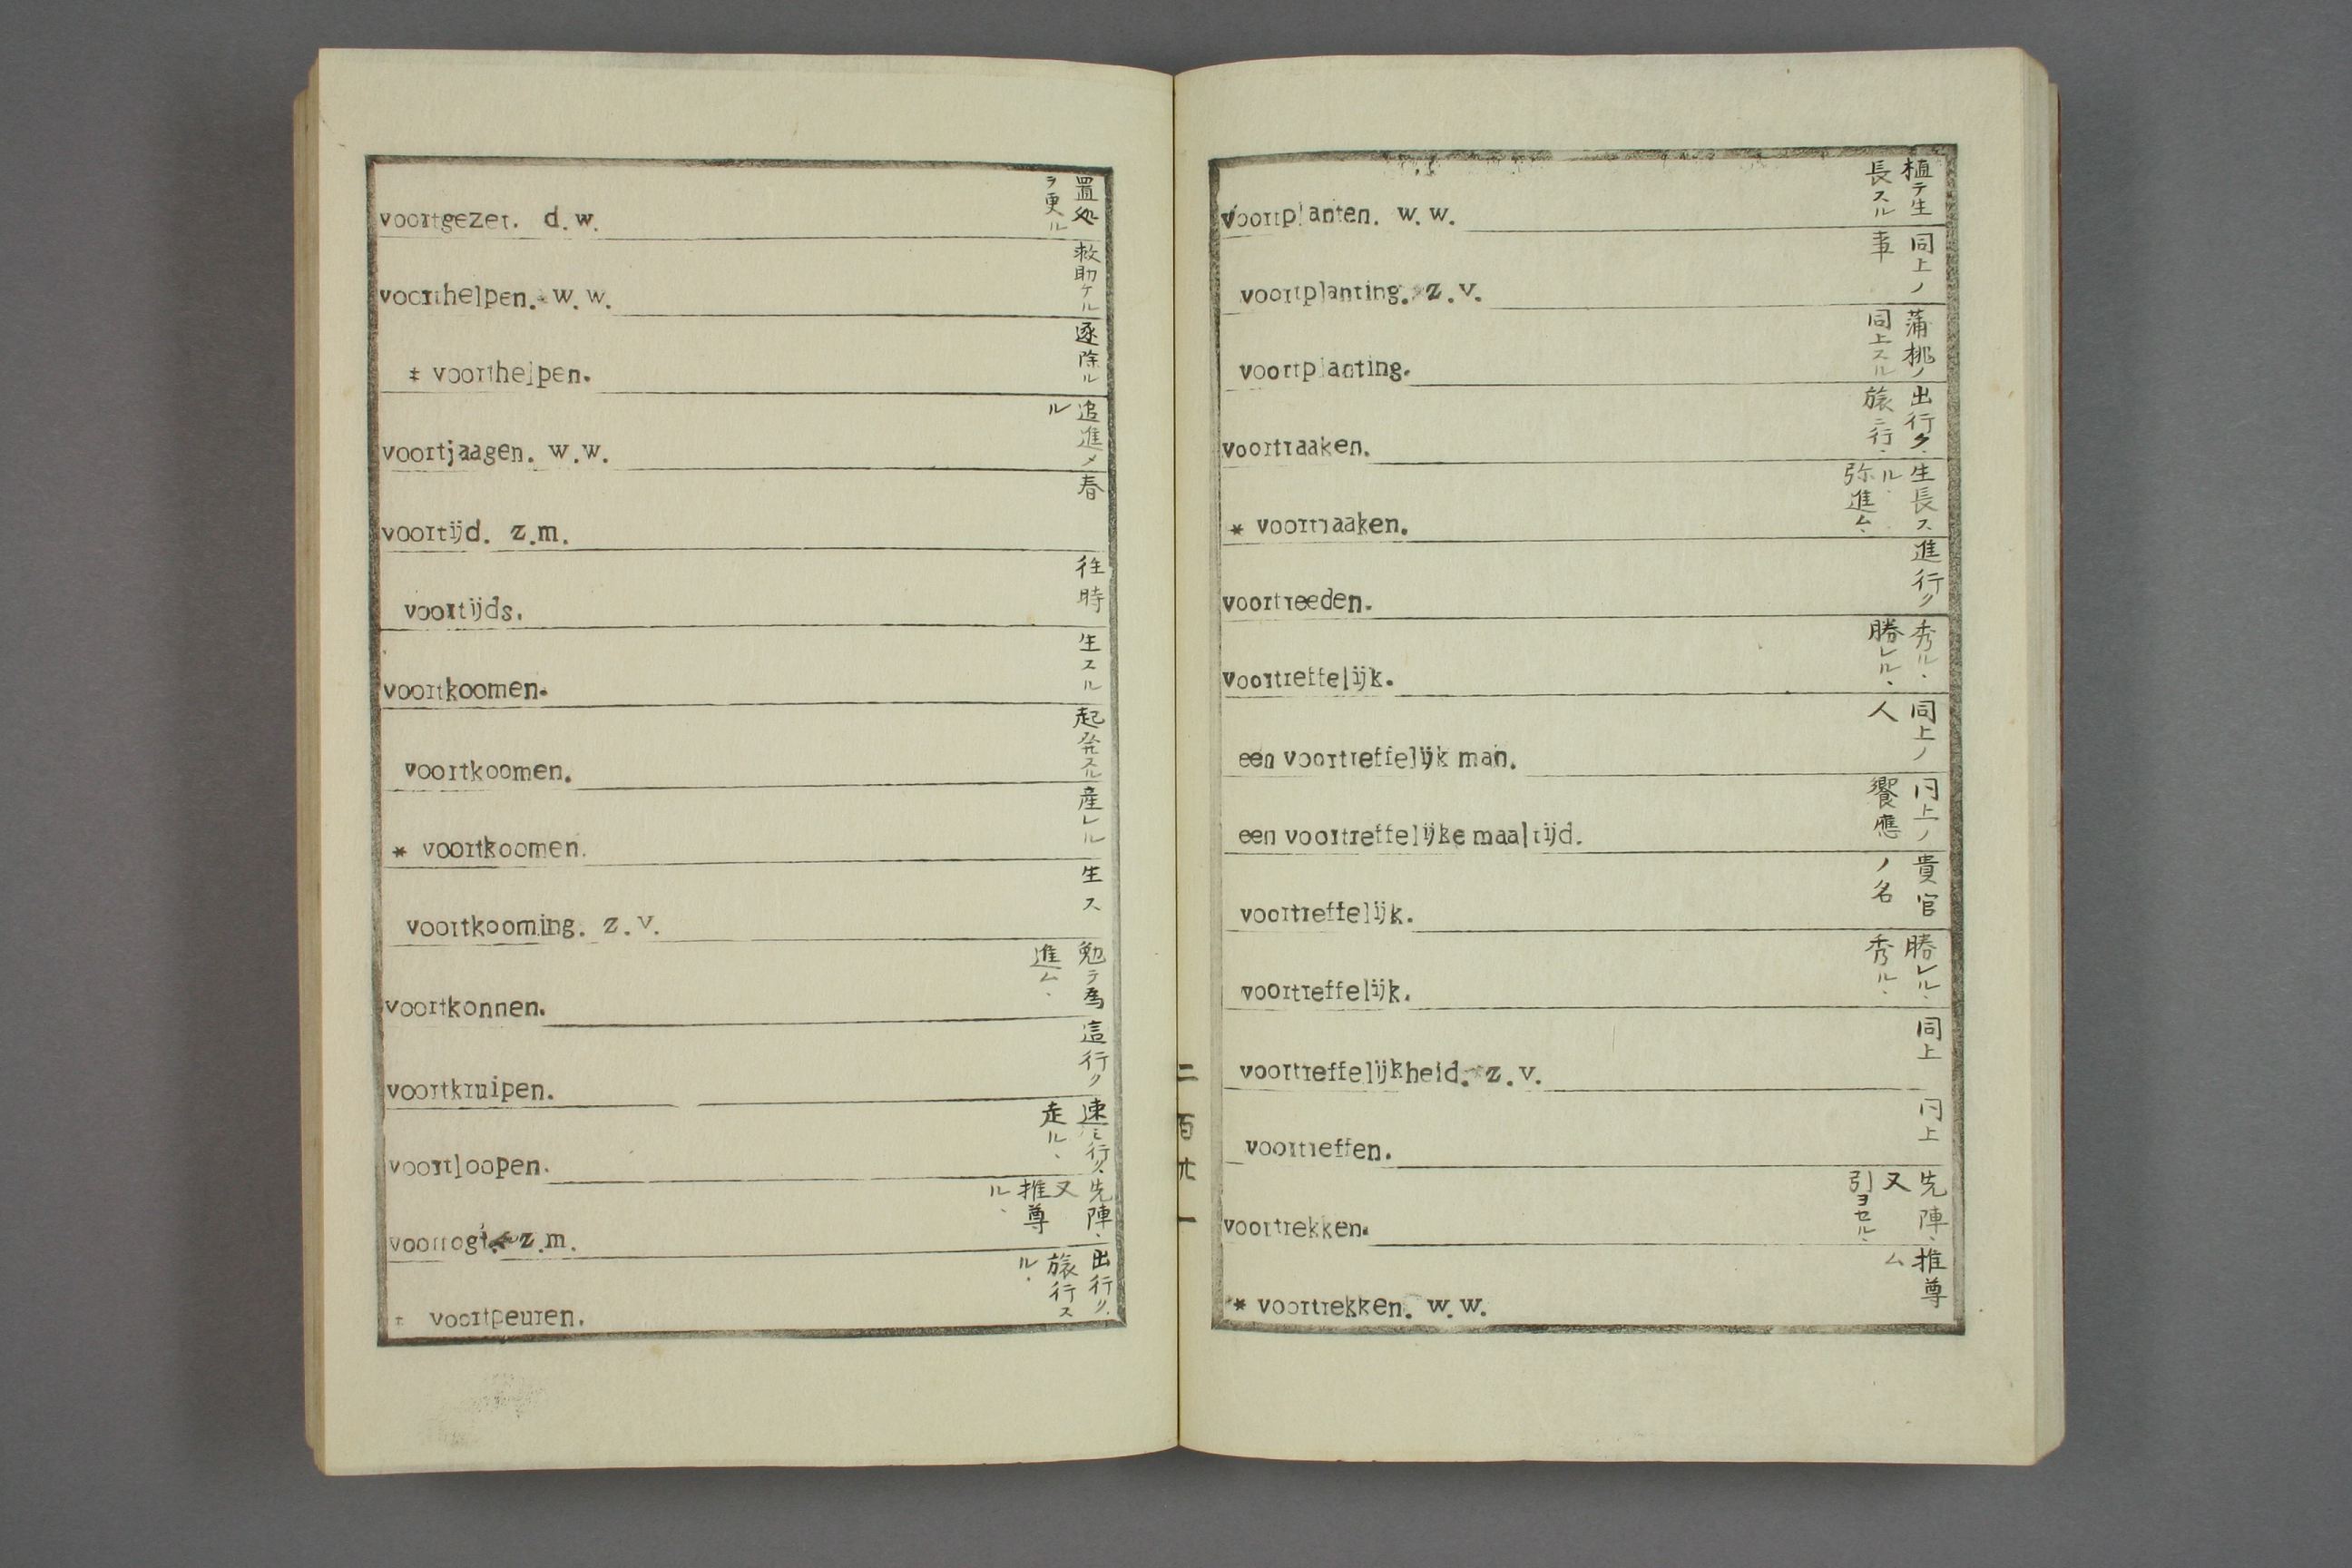 voortgezet. d.w.
置処
ヲ更ル
voorthelpen. w.w.
救助ケル
‡ voorthelpen.
逐除ル
voortjaagen. w.w.
追進メ
ル
voortijd. z.m.
春
voortijds.
往時
voortkoomen.
生スル
voortkoomen.
起発スル
* voortkoomen.
産レル
voortkooming. z.v.
生ス
voortkonnen.
勉テ為
進ム、
voortkruipen.
這行ク
voortloopen.
速ニ行ク、
走ル、
voortogt. z.m.
先陣、
又
推尊
ル、
‡ voortpeuren.
出行ク、
旅行ス
ル、
二百九一
voortplanten. w.w.
植テ生
長スル
voortplanting. z.v.
同上ノ
事
voortplanting.
蒲桃ノ
同上スル
voortraaken.
出行ク、
旅ニ行、
* voortraaken.
生長ス
ル、
弥進ム、
voortreeden.
進行ク
voortreffelijk.
秀ル、
勝レル、
een voortreffelijk man.
同上ノ
人
een voortreffelijke maaltijd.
同上ノ
饗應
voortreffelijk.
貴官
ノ名
voortreffelijk.
勝レル、
秀ル、
voortreffelijkheid. z.v.
同上
voortreffen.
同上
voortrekken.
先陣、
又
引ヨセル、
* voortrekken. w.w.
推尊
ム